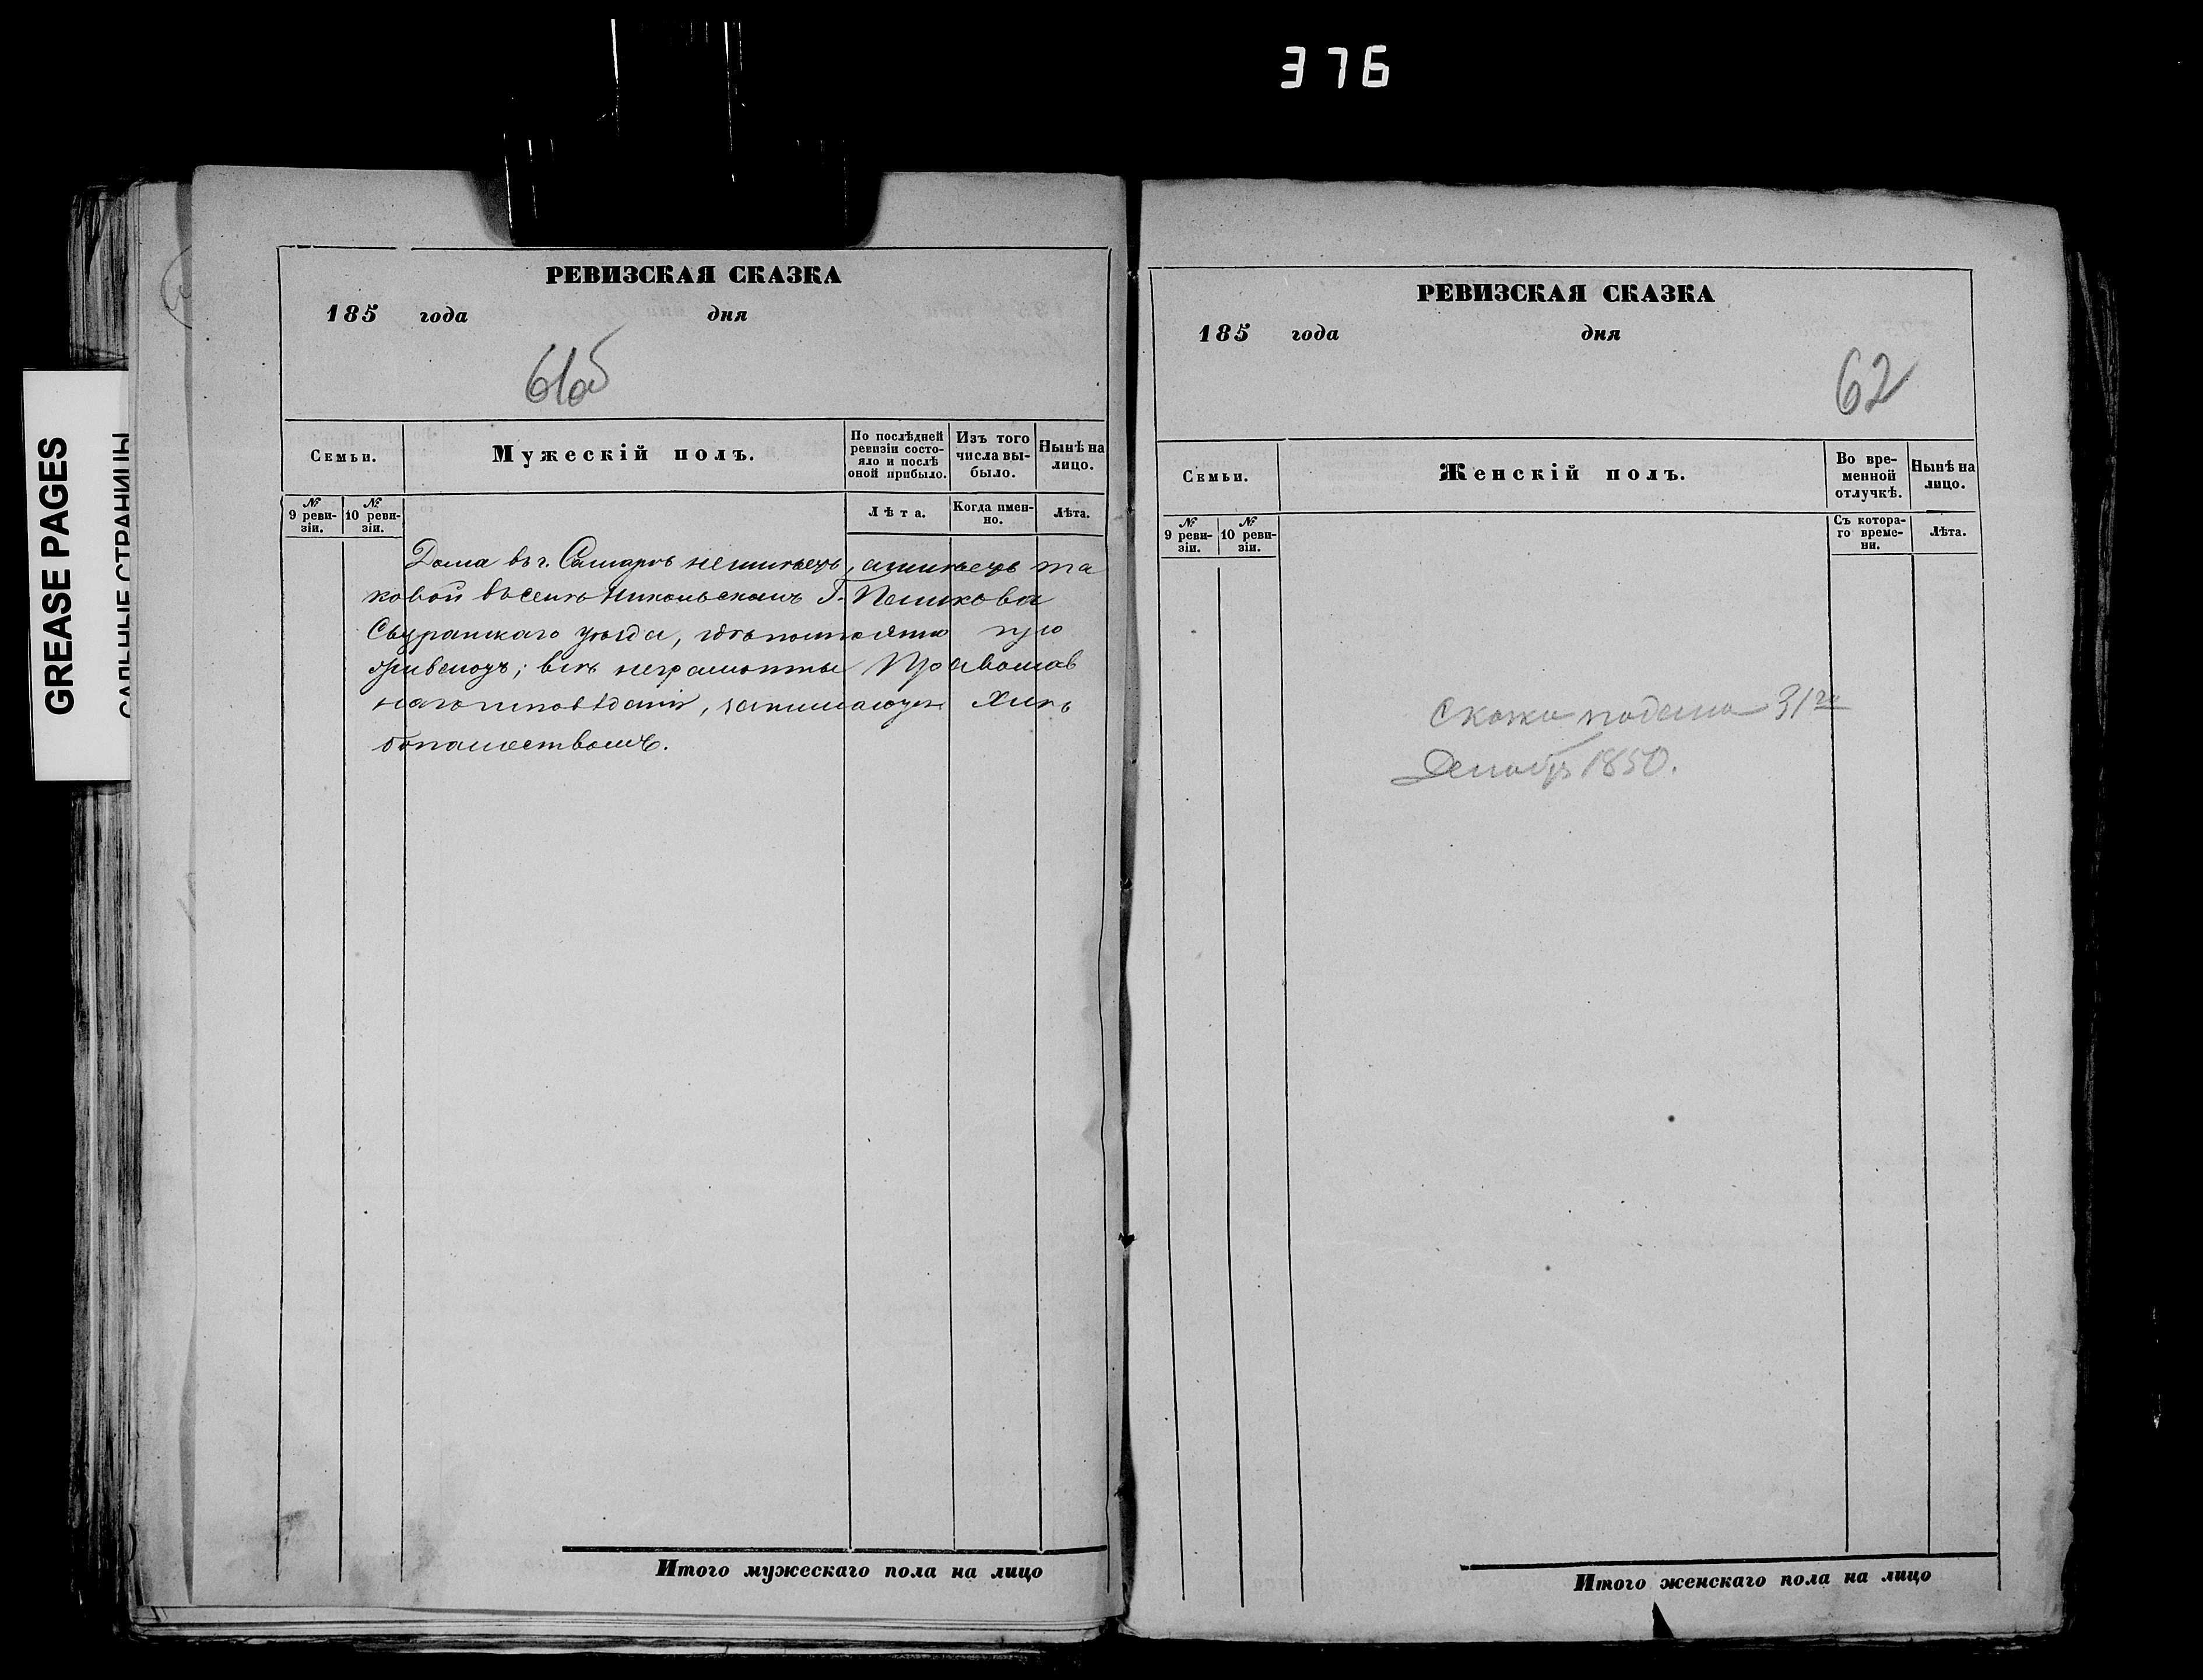 376
GREASE PAGES
САЛЬНЫЕ СТРАНИЦЫ
РЕВИЗСКАЯ СКАЗКА
185 года дня
61об
Семьи.
Мужескій полъ.
По послѣдней ревизіи состояло и послѣ оной прибыло.
Изъ того числа выбыло.
Нынѣ на лицо.
№ 9 ревизіи.
№ 10 ревизіи.
Лѣта.
Когда именно.
Лѣта.
Дома въ г. Самарѣ неимѣетъ, а имѣетъ та
ковой въ селѣ Никольскомъ Г. Пешкова
Сызранскаго уѣзда,
всѣ неграмотны Православ
наго исповѣданія, занимаются Хлѣ
бопашествомъ.
Итого мужескаго пола на лицо
РЕВИЗСКАЯ СКАЗКА
185 года дня
62
Семьи.
Женскій полъ.
Во временной отлучкѣ.
Нынѣ на лицо.
№ 9 ревизіи.
№ 10 ревизіи.
Съ котораго времени.
Лѣта.
Сказка подана 31го
Декабр 1850.
Итого женскаго пола на лицо